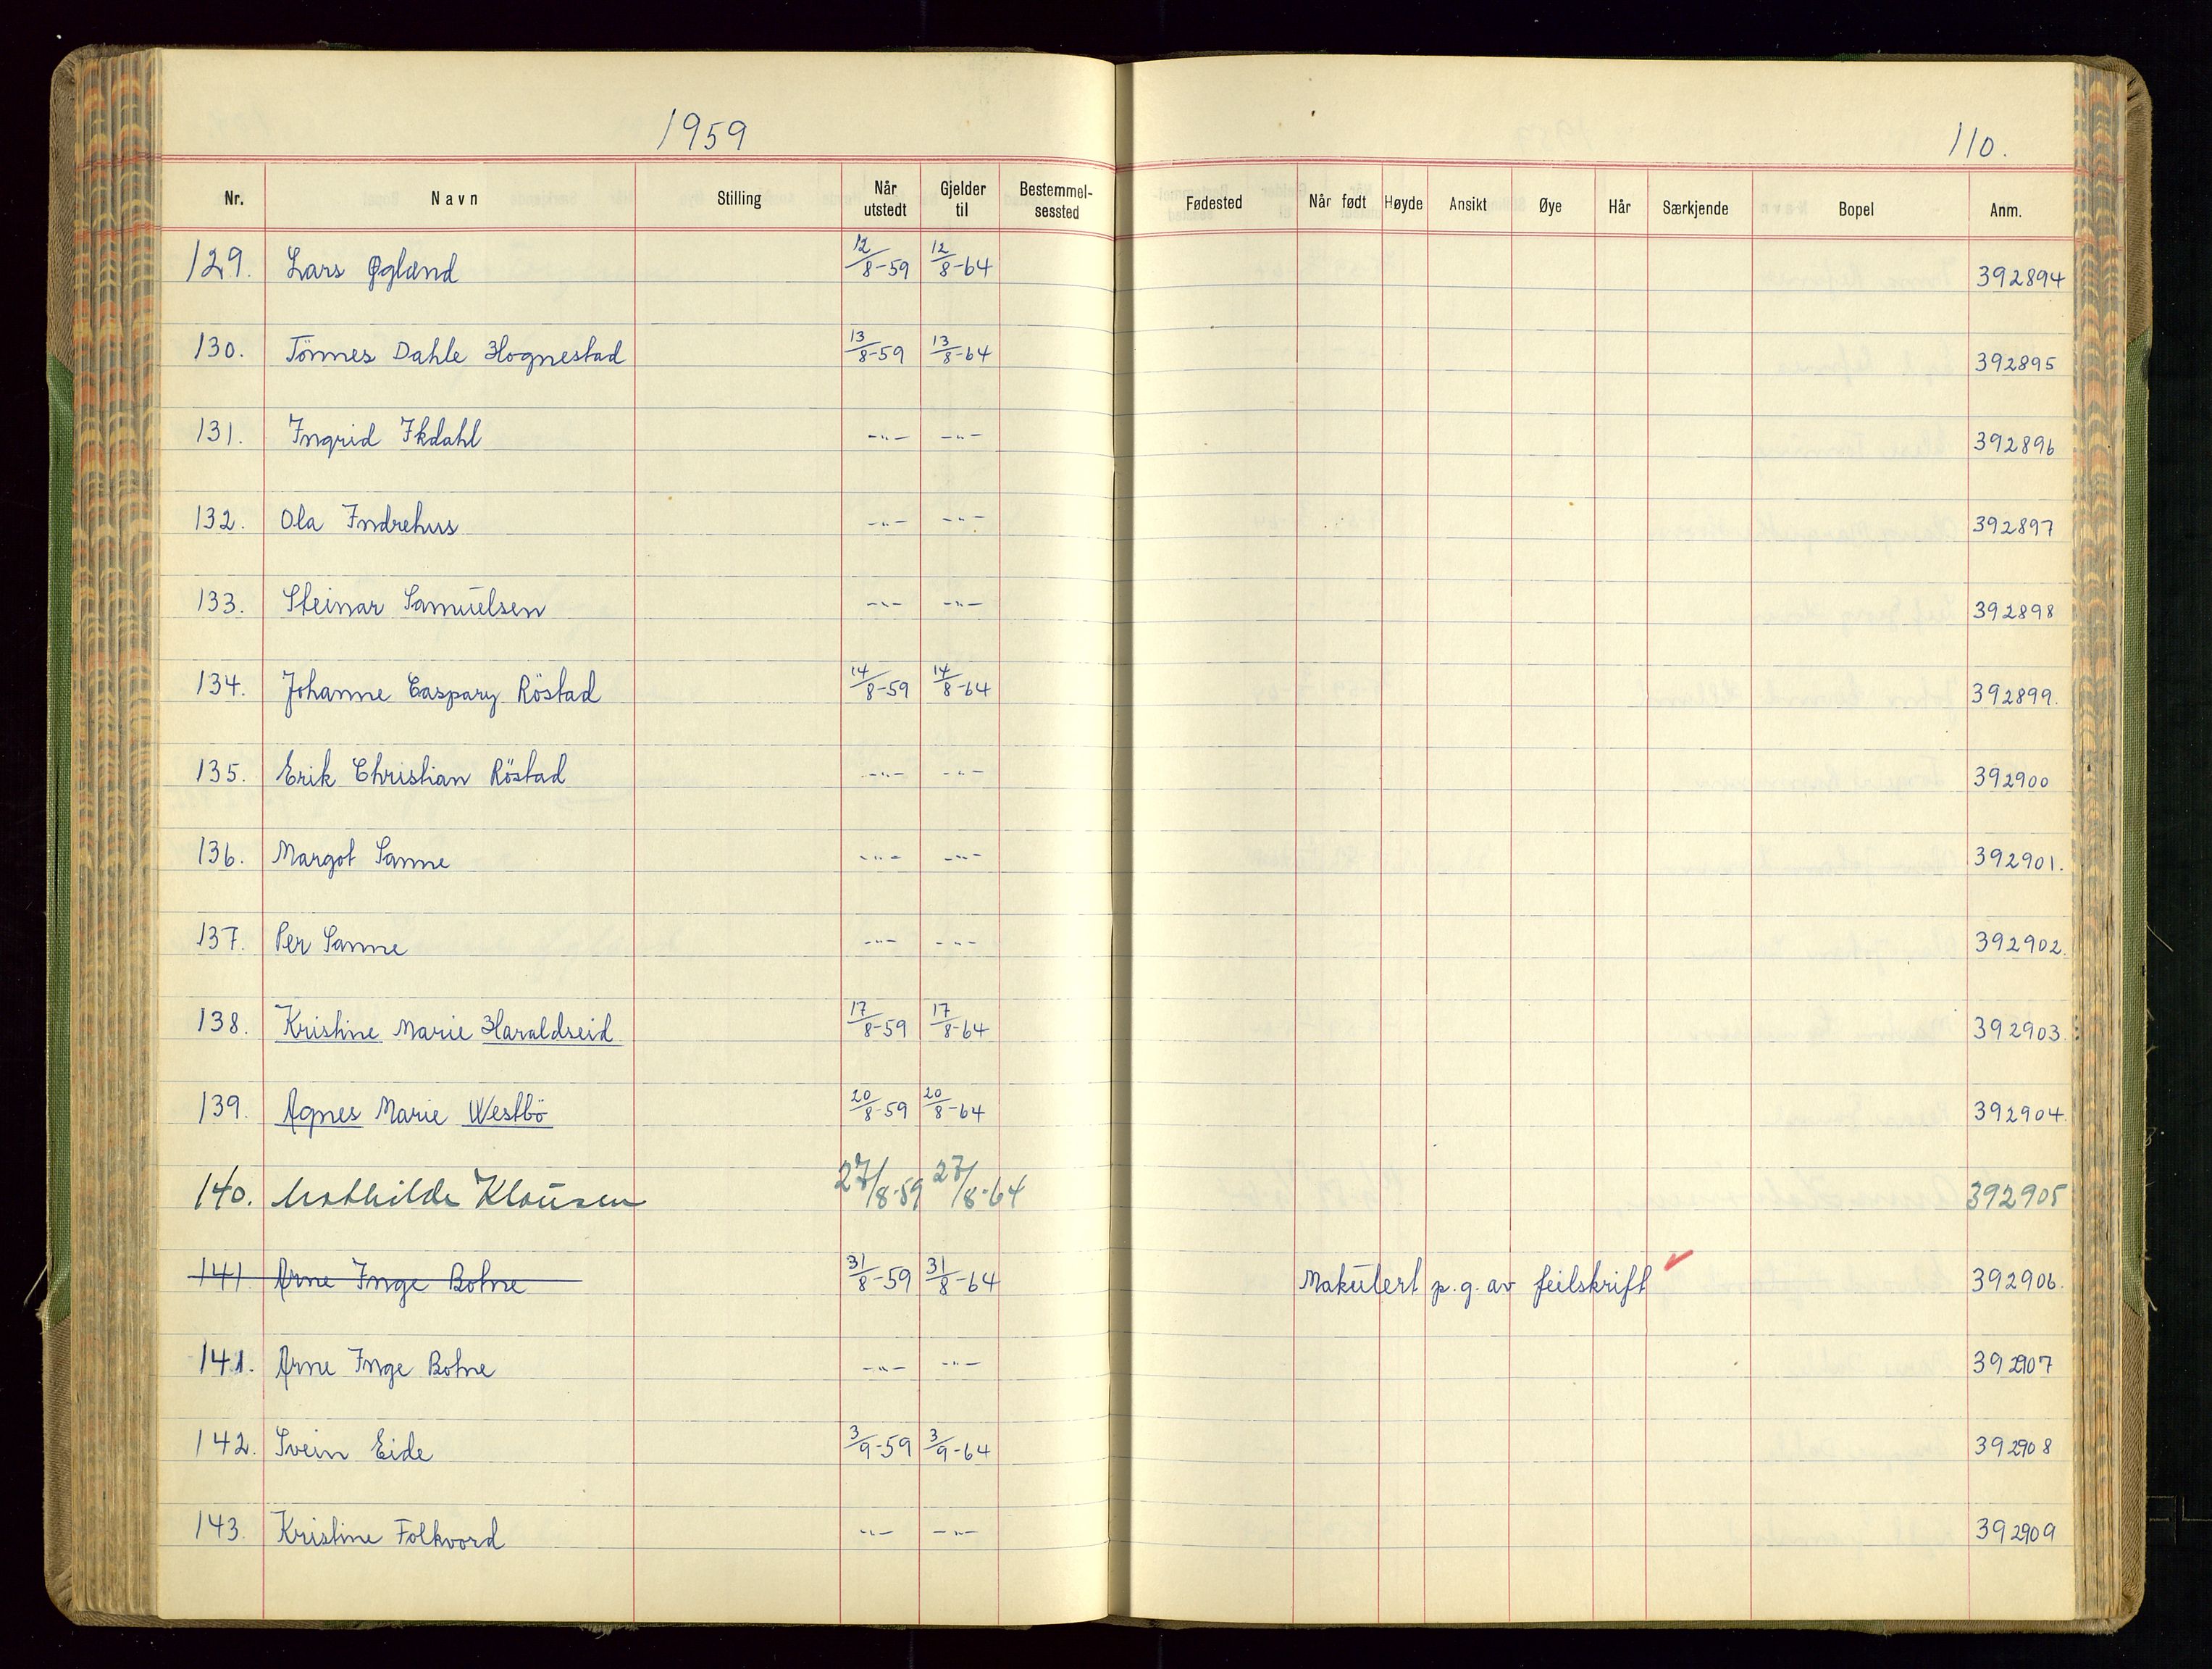 1959
110.
Nr. Navn Stilling Når utstedt Gjelder til Bestemmel-sessted Fødested Når født Høyde Ansikt Øye Hår Særkjende Bopel Anm.
129. Lars Øgland 12/8-59 12/8-64 392894
130. Tönnes Dahle Hognestad 13/8-59 13/8-64 392895
131. Ingrid Ikdahl -"- -"- 392896
132. Ola Indrehus -"- -"- 392897
133. Steinar Samuelsen -"- -"- 392898
134. Johanne Caspary Röstad 14/8-59 14/8-64 392899.
135. Erik Christian Röstad -"- -"- 392900
136. Margot Sanne -"- -"- 392901.
137. Per Sanne -"- -"- 392902.
138. Kristine Marie Haraldseid 17/8-59 17/8-64 392903.
139. Agnes Marie Westbö 20/8-59 20/8-64 392904.
140. Mathilde Klausen 27/8-59 27/8-64 392905
141 Arne Inge Bohne 31/8-59 31/8-64 Makulert p.g.av feilskrift 392906.
141. Arne Inge Bohne -"- -"- 392907
142. Svein Eide 3/9-59 3/9-64 392908
143. Kristine Folkvord -"- -"- 392909